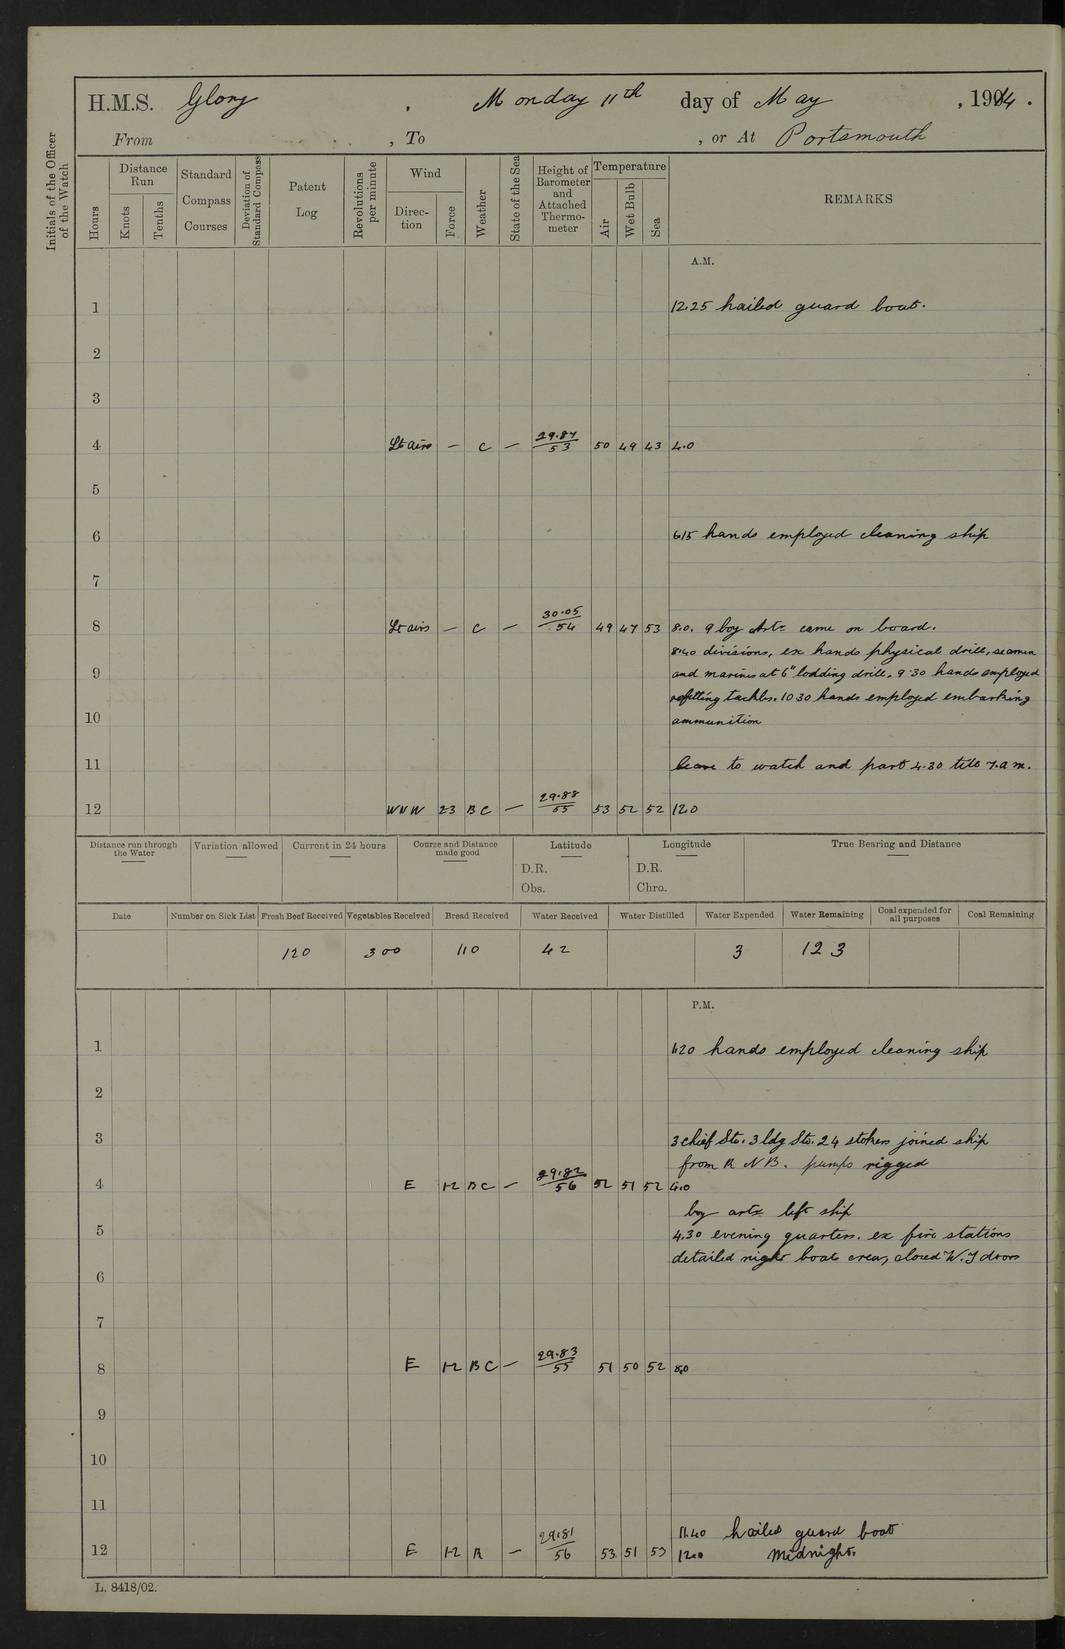 H.M.S. Glory, Monday 11th day of May, 1914.
From , To , or At Portsmouth
Initials of the Officer of the Watch
Hours
Distance Run
Knots
Tenths
Standard Compass Courses
Deviation of Standard Compass
Patent Log
Revolutions per minute
Wind
Direction
Force
Weather
State of the Sea
Height of Barometer and Attached Thermometer
Temperature
Air
Wet Bulb
Sea
REMARKS
A.M.
1 12.25 hailed guard boat.
2
3
4 Lt airs — C — 29.87/53 50 49 43 4.0
5
6 615 hands employed cleaning ship
7
8 Lt airs — C — 30.05/54 49 47 53 8.0. 9 boy Arts came on board.
8.40 divisions, ex hands physical drill, seamen
9 and marines at 6" lodding drill. 9 30 hands employed
refitting tackles. 10 30 hands employed embarking
10 ammunition
11 leave to watch and part 4.30 till 7.a.m.
12 WNW 23 BC — 29.88/55 53 52 52 12.0
Distance run through the Water
Variation allowed
Current in 24 hours
Course and Distance made good
Latitude
D.R.
Obs.
Longitude
D.R.
Chro.
True Bearing and Distance
Date Number on Sick List Fresh Beef Received Vegetables Received Bread Received Water Received Water Distilled Water Expended Water Remaining Coal expended for all purposes Coal Remaining
120 300 110 42 3 123
P.M.
1 1.20 hands employed cleaning ship
2
3 3 chief Sto. 3 ldg Sto. 24 stokers joined ship
from R N B. pumps rigged
4 E 1-2 BC — 29.82/56 52 51 52 4.0
boy arts left ship
5 4.30 evening quarters. ex fire stations
detailed night boat crew, closed W.T doors
6
7
8 E 1-2 BC — 29.83/55 51 50 52 8.0
9
10
11
11.40 hailed guard boat
12 E 1-2 R — 29.81/56 53 51 53 12.0 Midnight.
L. 8418/02.